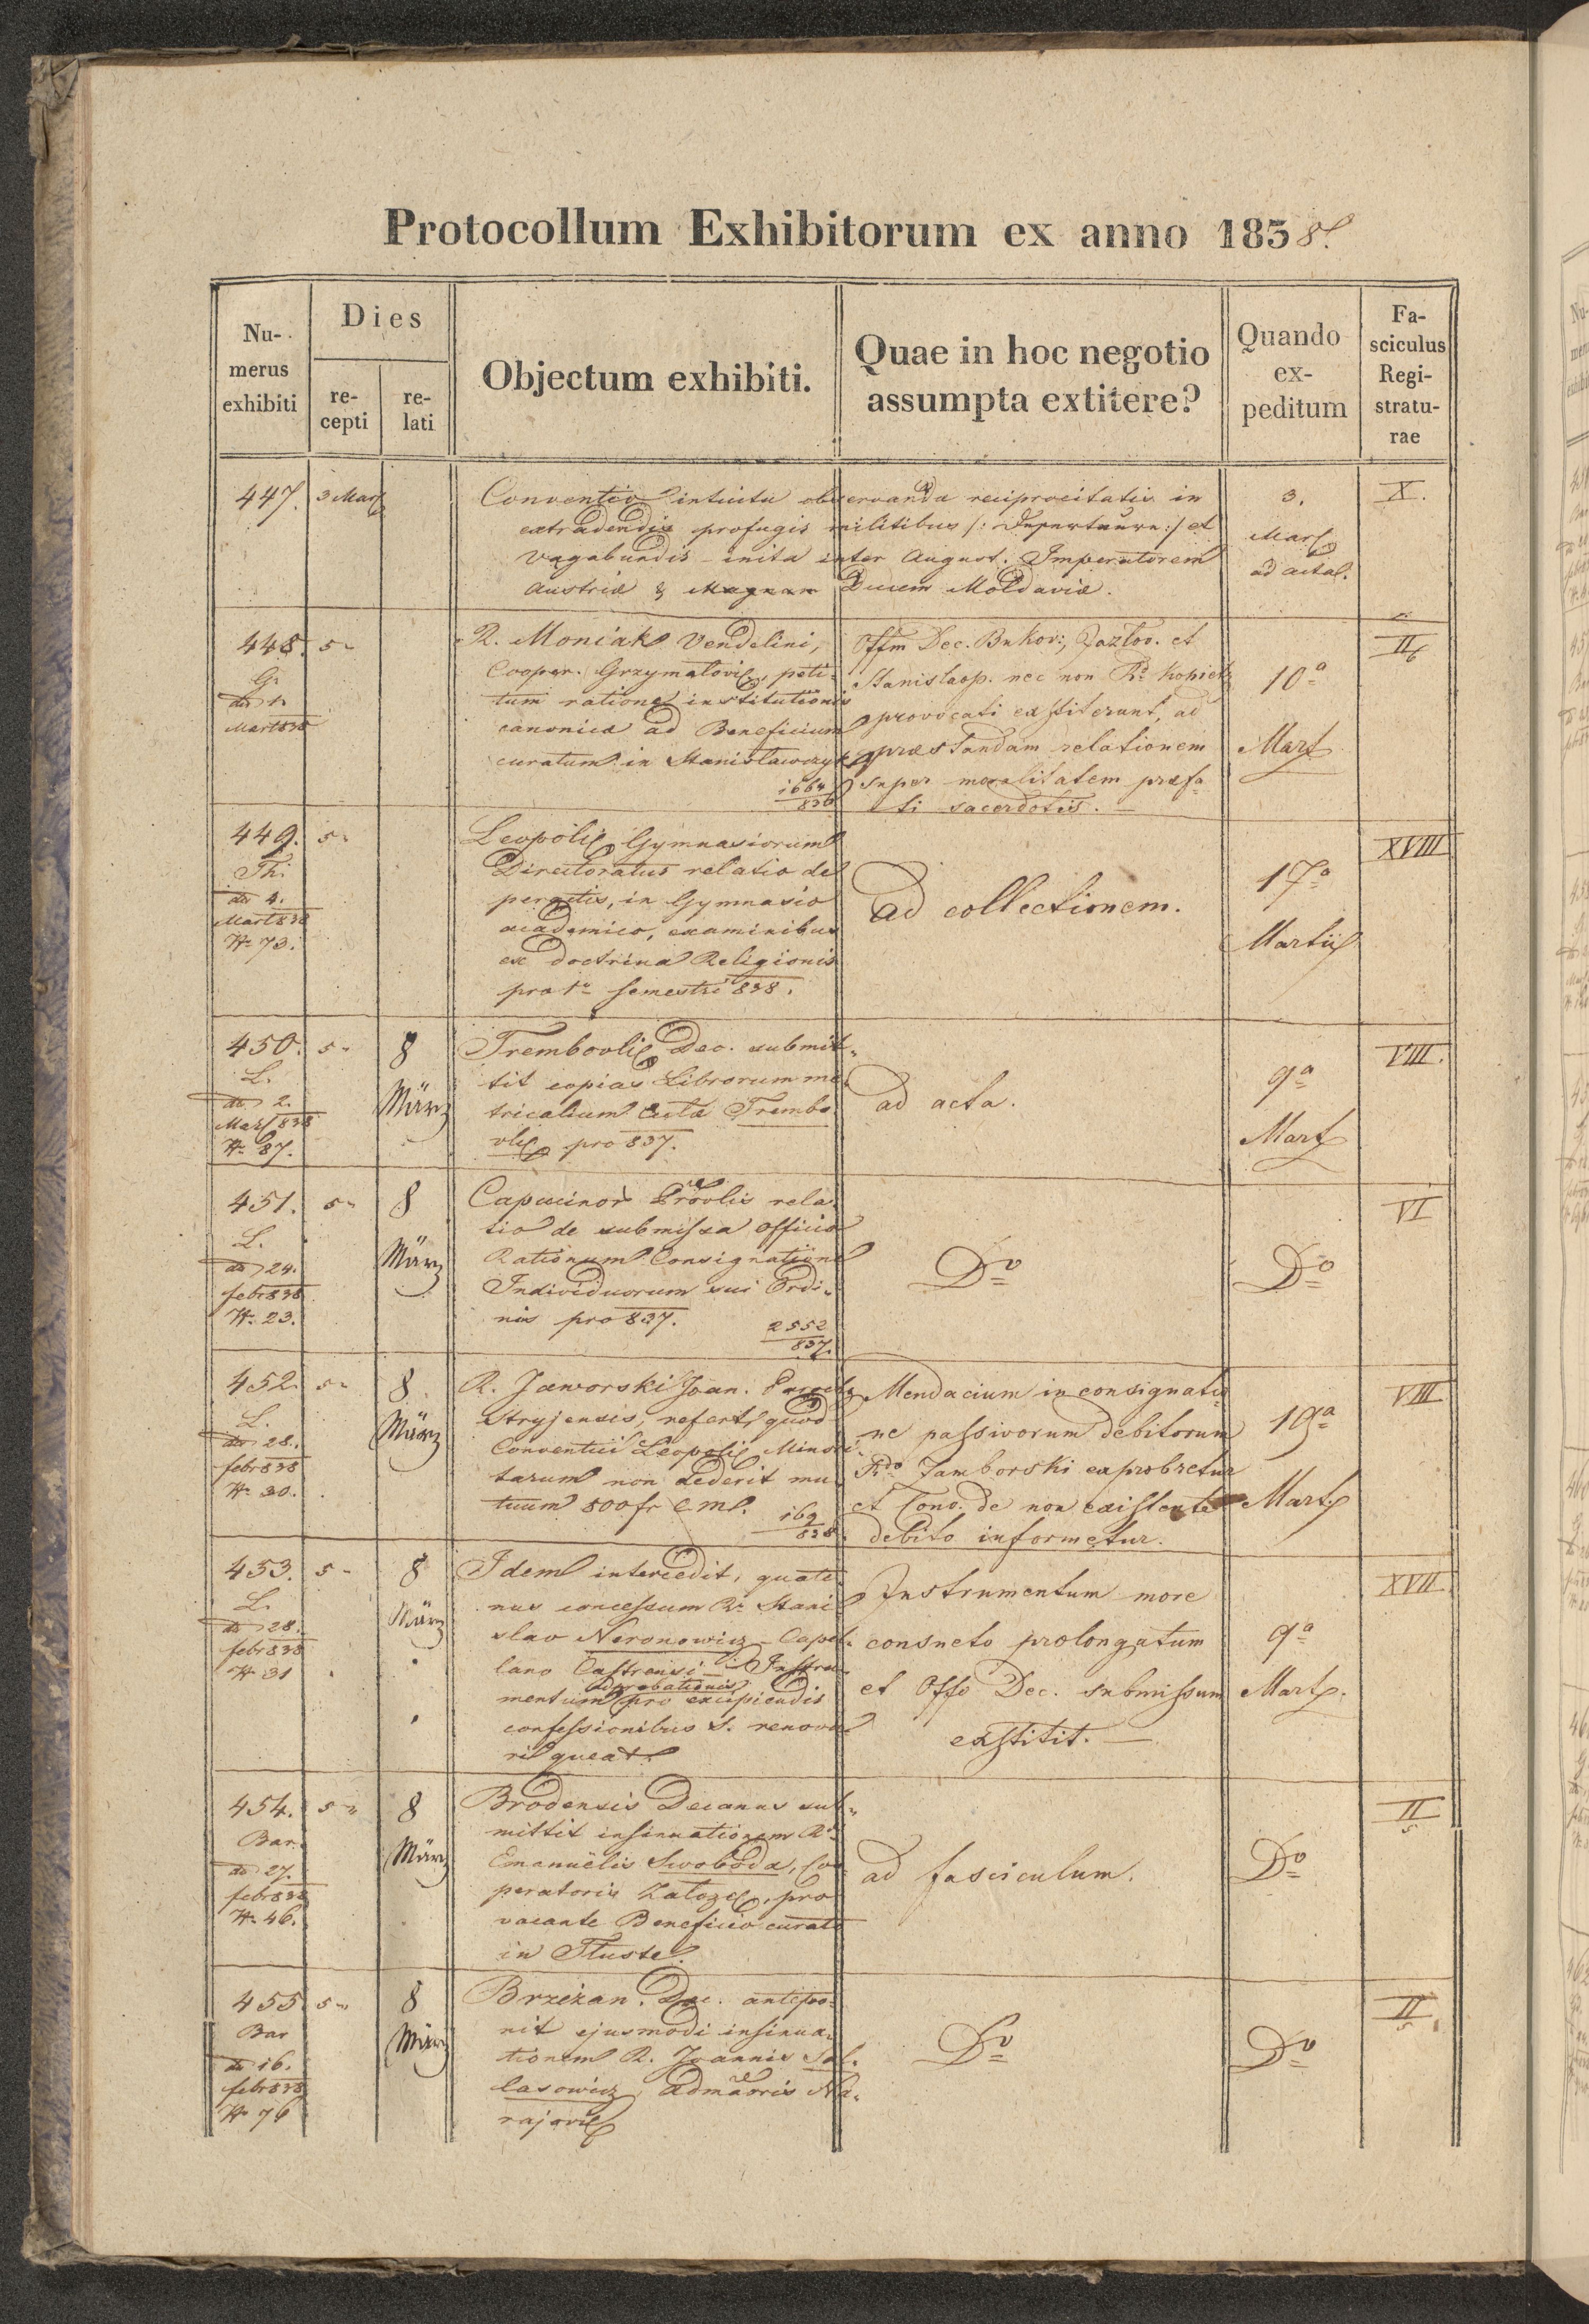 Protocollum Exhibitorum ex anno 1838.
Nu-
merus
exhibiti
Dies
re-
cepti
re-
lati
Objectum exhibiti.
Quae in hoc negotio
assumpta extitere?
Quando
ex-
peditum
Fa-
sciculus
Regi-
stratu-
rae
447.
3 Mart
Conventio intuitu observanda reciprocitatis in
extradendis profugis militibus /: Deserteure :/ et
vagabundis inita inter August. Imperatorem
Austriæ & Magnum Ducem Moldaviæ.
3.
Mart
ad acta.
X.
448.
G.
dto 1.
Mart 838
5"
R. Moniak Vendelini,
Cooper. Grzymałoviæ, peti-
tum ratione institutionis
canonicæ ad Beneficium
curatum in Stanisławczyk
1664
836
Offm Dec. Bukov:, Jazłov. et
Stanislaop. nec non Rd. Kopietz
provocati exstiterunt, ad
præstandam relationem
super moralitatem præfa-
ti sacerdotis. —
10a
Mart
II
449.
Th.
dto 4.
Mart 838
N. 73.
5"
Leopoli Gymnasiorum
Directoratus relatio de
peractis, in Gymnasio
academico, examinibus
ex doctrina Religionis
pro 1o semestri 838.
ad collectionem.
17a
Martii
XVIII
450.
L.
dto 2.
Mart 838
N. 87.
5"
8
März
Trembovli Dec. submit-
tit copias Librorum me-
tricalium Ecclæ Trembo-
vli pro 837.
ad acta.
9a
Mart
VIII.
451.
L.
dto 24.
febr 838
N. 23.
5"
8
März
Capucinor Provlis rela-
tio de submissa officio
Rationum Consignatione
Individuorum sui Ordi-
nis pro 837.
2552
837.
Do
Do
VI
452.
L.
dto 28.
febr 838
N. 30.
5"
8.
März
R. Jaworski Joan.
Stryjensis, refert, quod
Conventui Leopoli Minori-
tarum non dederit mu-
tuum 500 fr CM.
169
838.
Mendacium in consignatio
ne passivorum debitorum
Rdo Jamborski exprobretur
et Cons. de non existente
debito informetur.
19a
Mart
VIII
453.
L.
dto 28.
febr 838
N 31
5"
8
März
Idem intercedit, quate-
nus concessum Ro Stani-
slao Neronowicz - Capel-
lano Castrensi - Instru-
adprobationis
mentum pro excipiendis
confessionibus S. renova-
ri queat.
Instrumentum more
consueto prolongatum
et Offo Dec. submissum
exstitit. —
9a
Mart.
XVII
454.
Bar.
dto 27.
febr 838
N. 46.
5"
8
März
Brodensis Decanus sub-
mittit insinuationem R.
Emanuëlis Swoboda, Co-
peratoris Załozc, pro
vacante Beneficio curato
in Tłuste.
ad fasciculum.
Do
II
455.
Bar
dto 16.
febr 838
N 76
5"
8
März
Brzeżan. Dec. antepo-
nit ejusmodi insinua-
tionem R. Joannis Sal-
lasowicz, Admãoris Na-
rajovi
Do
Do
II